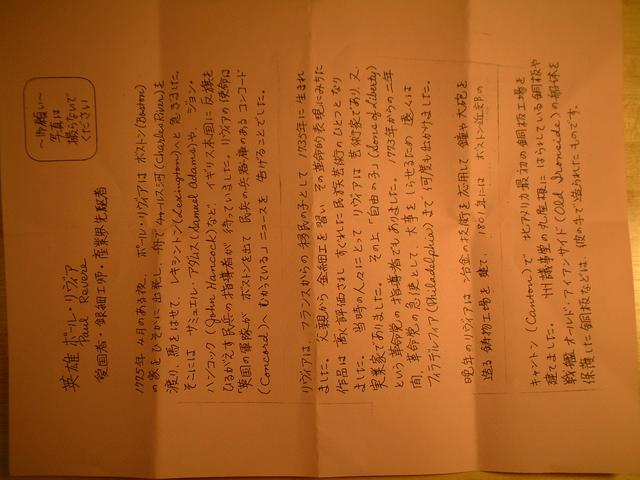 〜お願い〜
写真は
撮らないで
ください
英雄 ポール・リヴィア
Paul Revere
愛国者・銀細工師・産業界先駆者
1775年4月のある夜、ポール・リヴィアは ボストン(Boston)
の家をひそかに出発し、舟で チャールス河(Charles River)を
渡り、馬をはせて、レキシントン(Lexington)へと 急ぎました。
そこには サミュエル・アダムス(Samuel Adams)や、ジョン・
ハンコック(John Hancock)など、イギリス本国に 反旗を
ひるがえす民兵の指導者が 待っていました。リヴィアの使命は
「英国の軍隊が ボストンを出て 民兵の兵器庫のある コンコード
(Concord)へ むかっている」ニュースを 告げることでした。
リヴィアは、フランスからの移民の子として 1735年に生まれ
ました。父親から 金細工を習い その革命的表現にみちた
作品は 高く評価され すぐれた民族芸術の ひとつとなり
ました。 当時の人々にとって リヴィアは 芸術家であり、又
実業家でありました。その上「自由の子」(Sons of Liberty)
という 革命党の指導者でもありました。1773年からの二年
間、革命党の急使として、大事を しらせるため 遠くは
フィラデルフィア(Philadelphia)まで 何度も出かけました。
晩年のリヴィアは 冶金の技術を応用して 鐘や大砲を
造る 鋳物工場を 建て、1801年には ボストン近郊の
キャントン (Canton)で 北アメリカ最初の銅板工場を
建てました。 州議事堂の丸屋根に はられている銅板や
戦艦 オールド・アイアンサイド(Old Ironside)の船体を
保護した銅板などは、彼の手で造られたものです。